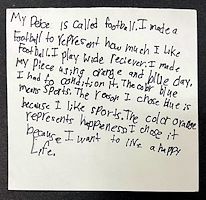 My Peice is called football. I made a
Football to represent how much I like
Football. I play wide reciever. I made
my piece using orange and blue clay.
I had to condition it. The color blue
means sports. The reason I chose blue is
because I like sports. The color orange
represents happieness. I chose it
because I want to live a happy
Life.